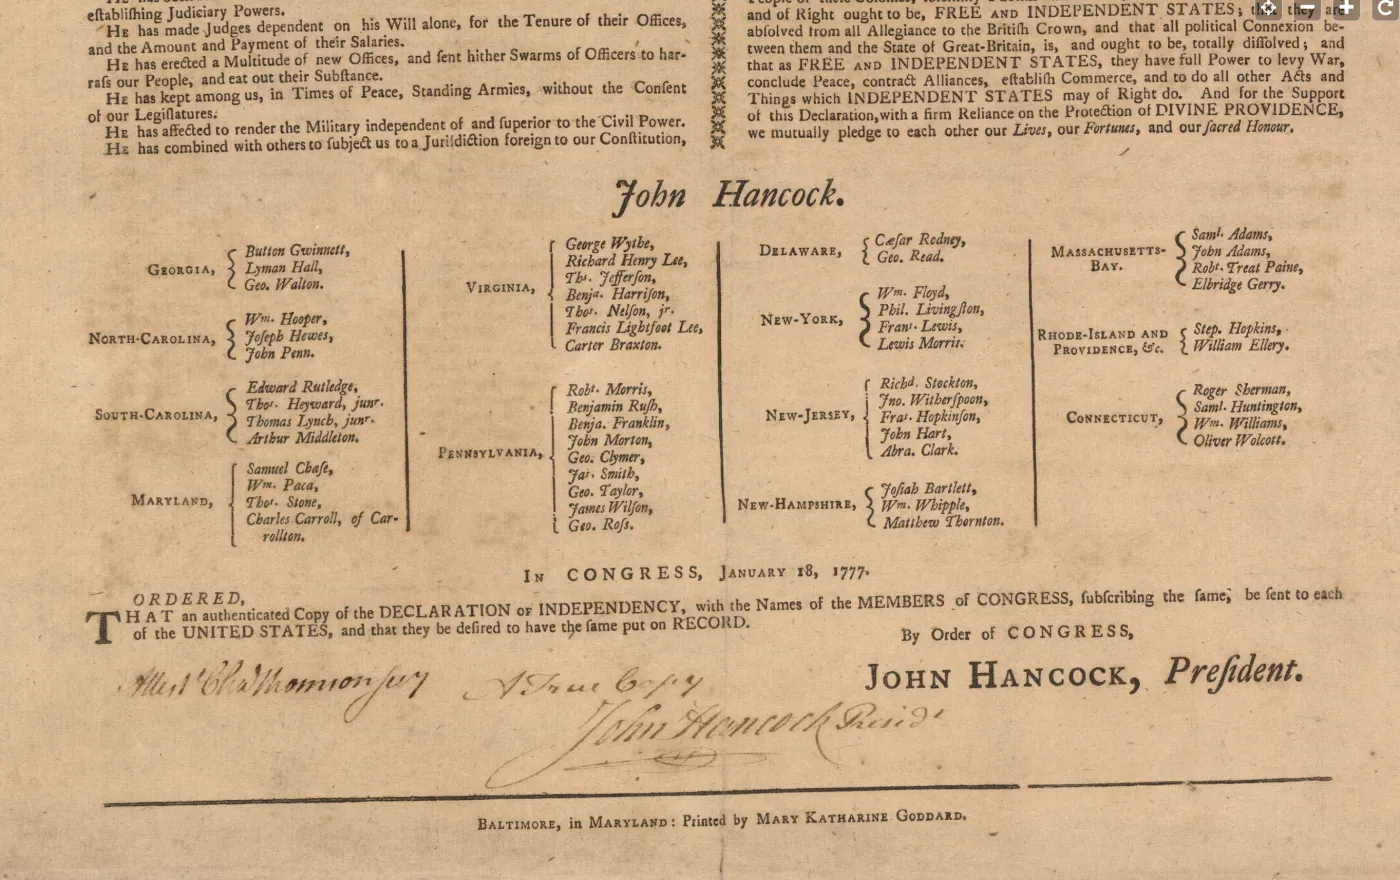 eſtabliſhing Judiciary Powers.
HE has made Judges dependent on his Will alone, for the Tenure of their Offices,
and the Amount and Payment of their Salaries.
HE has erected a Multitude of new Offices, and ſent hither Swarms of Officers to har-
raſs our People, and eat out their Subſtance.
HE has kept among us, in Times of Peace, Standing Armies, without the Conſent
of our Legiſlatures.
HE has affected to render the Military independent of and ſuperior to the Civil Power.
HE has combined with others to ſubject us to a Juriſdiction foreign to our Conſtitution,
and of Right ought to be, FREE AND INDEPENDENT STATES; that they are
abſolved from all Allegiance to the Britiſh Crown, and that all political Connexion be-
tween them and the State of Great-Britain, is, and ought to be, totally diſſolved; and
that as FREE AND INDEPENDENT STATES, they have full Power to levy War,
conclude Peace, contract Alliances, eſtabliſh Commerce, and to do all other Acts and
Things which INDEPENDENT STATES may of Right do. And for the Support
of this Declaration, with a firm Reliance on the Protection of DIVINE PROVIDENCE,
we mutually pledge to each other our Lives, our Fortunes, and our ſacred Honour.
John Hancock.
GEORGIA,
Button Gwinnett,
Lyman Hall,
Geo. Walton.
NORTH-CAROLINA,
Wm. Hooper,
Joſeph Hewes,
John Penn.
SOUTH-CAROLINA,
Edward Rutledge,
Thos. Heyward, junr.
Thomas Lynch, junr.
Arthur Middleton.
MARYLAND,
Samuel Chaſe,
Wm. Paca,
Thos. Stone,
Charles Carroll, of Car-
rollton.
VIRGINIA,
George Wythe,
Richard Henry Lee,
Ths. Jefferſon,
Benja. Harriſon,
Thos. Nelſon, jr.
Francis Lightfoot Lee,
Carter Braxton.
PENNSYLVANIA,
Robt. Morris,
Benjamin Ruſh,
Benja. Franklin,
John Morton,
Geo. Clymer,
Jas. Smith,
Geo. Taylor,
James Wilſon,
Geo. Roſs.
DELAWARE,
Cæſar Rodney,
Geo. Read.
NEW-YORK,
Wm. Floyd,
Phil. Livingſton,
Frans. Lewis,
Lewis Morris.
NEW-JERSEY,
Richd. Stockton,
Jno. Witherſpoon,
Fras. Hopkinſon,
John Hart,
Abra. Clark.
NEW-HAMPSHIRE,
Joſiah Bartlett,
Wm. Whipple,
Matthew Thornton.
MASSACHUSETTS-
BAY.
Saml. Adams,
John Adams,
Robt. Treat Paine,
Elbridge Gerry.
RHODE-ISLAND AND
PROVIDENCE, &c.
Step. Hopkins,
William Ellery.
CONNECTICUT,
Roger Sherman,
Saml. Huntington,
Wm. Williams,
Oliver Wolcott.
IN CONGRESS, JANUARY 18, 1777.
ORDERED,
THAT an authenticated Copy of the DECLARATION OF INDEPENDENCY, with the Names of the MEMBERS of CONGRESS, ſubſcribing the ſame, be ſent to each
of the UNITED STATES, and that they be deſired to have the ſame put on RECORD.
By Order of CONGRESS,
JOHN HANCOCK, Preſident.
Attest Chas Thomson Secy
A True Copy
John Hancock Presidt
BALTIMORE, in MARYLAND: Printed by MARY KATHARINE GODDARD.